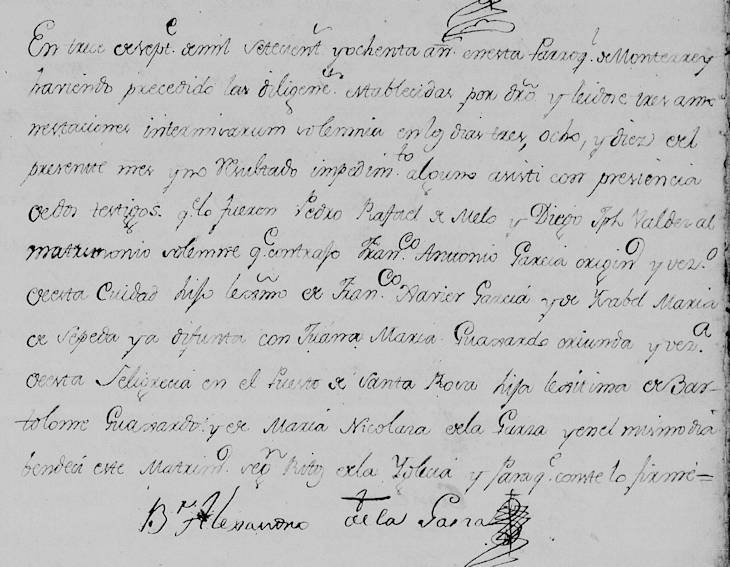 En trece de Sept.e de mil setecient.s y ochenta an.s en esta Parroq.l de Monterrey
haviendo precedido las diligenc.s establecidas por dro. y leidose tres amo
nestaciones intermisarum solemnia en los dias tres, ocho, y diez del
presente mes y no resultado impedim.to alguno asisti con presiencia
de dos testigos. q.e lo fueron Pedro Rafael de Melo y Diego Jph Valdes al
matrimonio solemne q.e contrajo Fran.co Antonio Garcia origin.o y vez.o
de esta Cuidad hijo lexmo de Fran.co Xavier Garcia y de Ysabel Maria
de Sepeda ya difunta con Juana Maria Guajardo oriunda y vez.a
de esta Feligrecia en el Puesto de Santa Rosa hija lexitima de Bar-
tolome Guajardo: y de Maria Nicolasa de la Garza y en el mismo dia
bendeci este Matrim.o seg.n Rito de la Yglecia y Para q.e conste lo firmé=
B.r Alexandro de la Garza